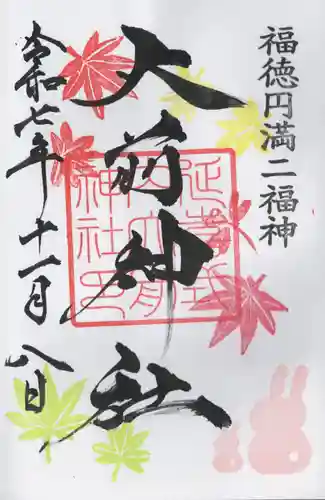 福徳円満二福神
大前神社
延喜式内大前神社印
令和七年十一月八日